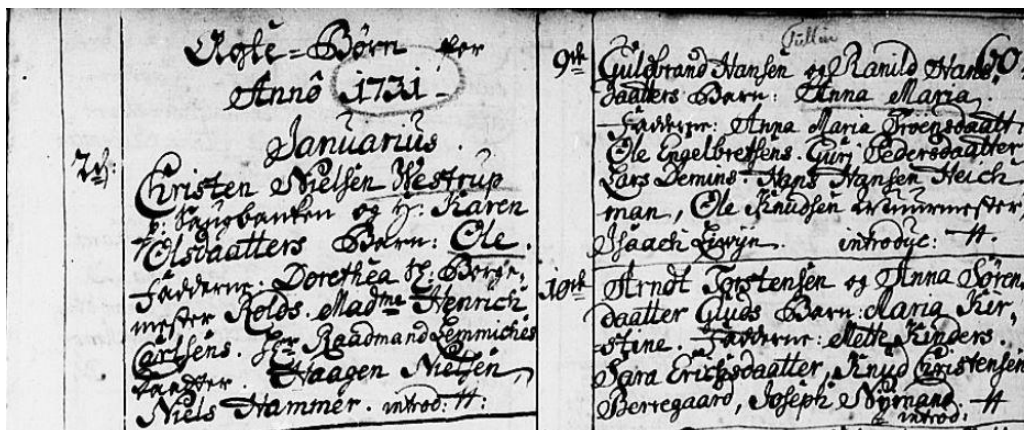 Ægte=Børn for
Annô 1731
Januarius.
2d:
Christen Nielsen Westrup
p: Saugbanken og H: Karen
Olsdaatters Barn: Ole.
Fadderne: Dorethea Sl: Berge=
mester Rolds. Madme Henrich
Carlsens. Hr Raadmand Lemmiches
Daatter. Haagen Nielsen,
Niels Hammer. introd: H:
60.
9de Guldbrand Hansen og Ranild Hans
daatters Barn: Anna Maria.
Fadderne: Anna Maria Troensdaatt:
Ole Engelbretsens. Guri Pedersdaatter
Lars Demins. Hans Hansen Heich
man, Ole Knudsen Muurmester,
Isaach. introduc: H.
10de Arndt Torstensen og Anna Søren
daatter Gluds Barn: Maria Kir=
stine. Fadderne: Mette Kinders.
Sara Erichsdaatter, Knud Christensen
Berregaard, Joseph Nÿmand. H
introd: